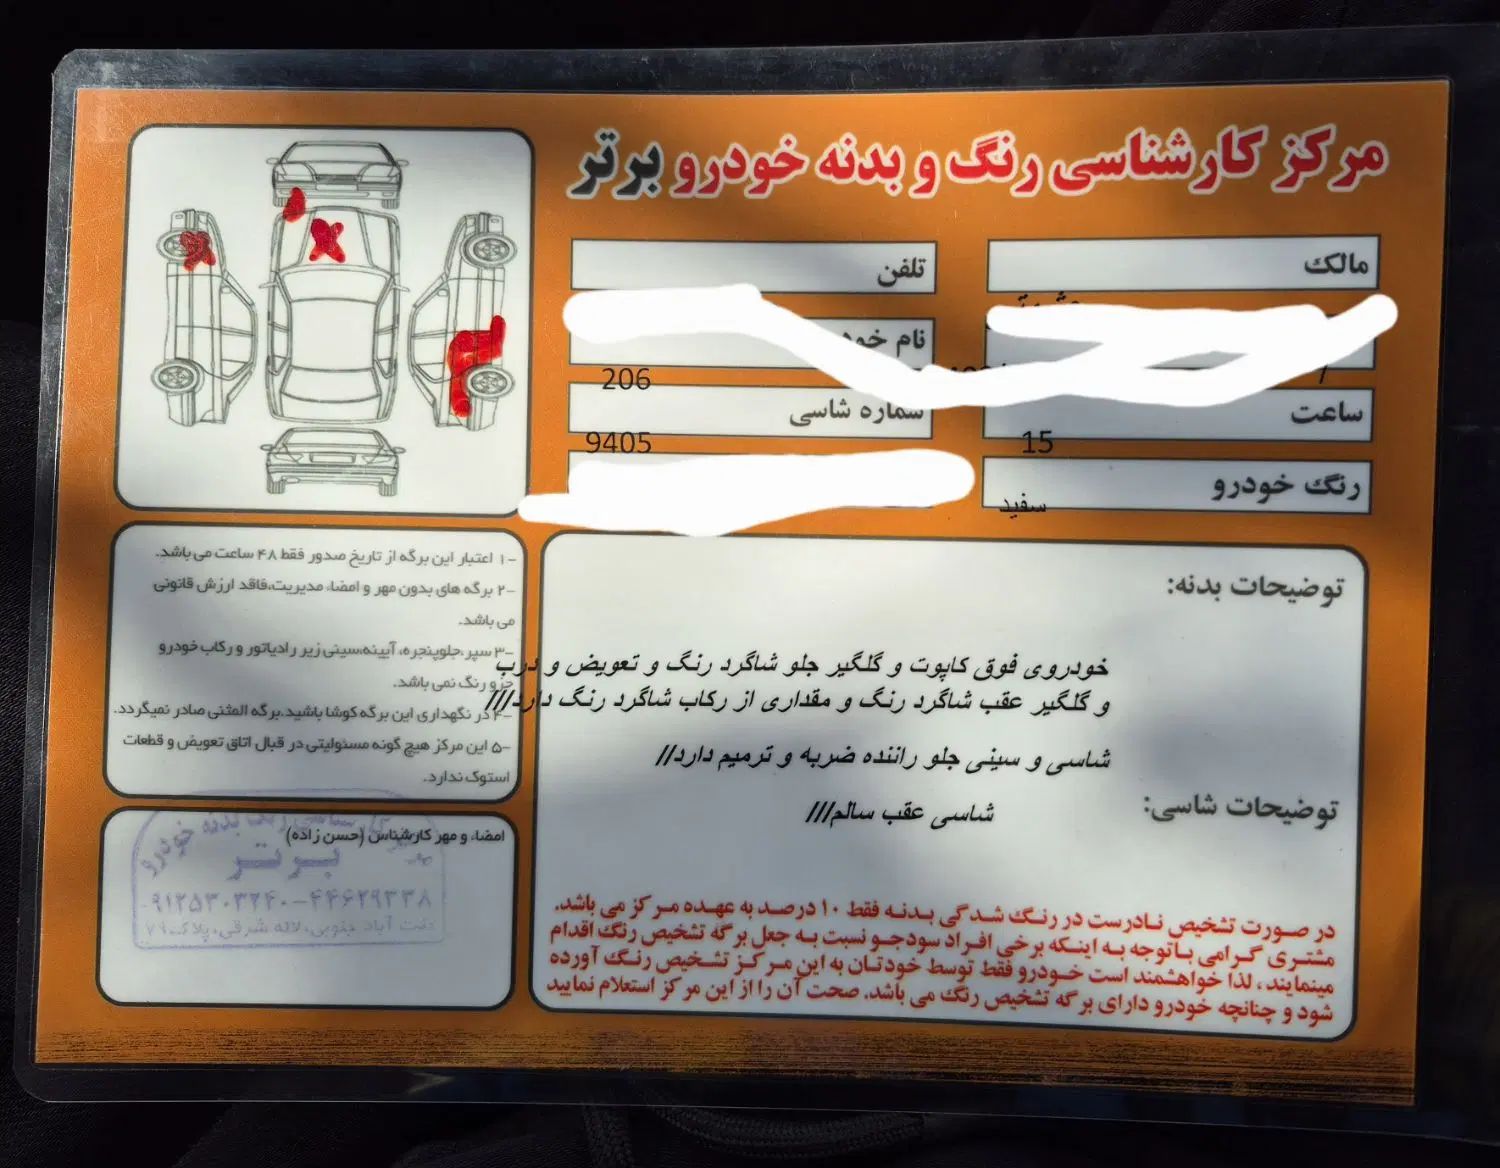 مرکز کارشناسی رنگ و بدنه خودرو برتر
مالک
تلفن
نام
206
ساعت
شماره شاسی
15
9405
رنگ خودرو
سفید
توضیحات بدنه:
خودروی فوق کاپوت و گلگیر جلو شاگرد رنگ و تعویض و درب
و گلگیر عقب شاگرد رنگ و مقداری از رکاب شاگرد رنگ دارد///
شاسی و سینی جلو راننده ضربه و ترمیم دارد//
توضیحات شاسی:
شاسی عقب سالم///
در صورت تشخیص نادرست در رنگ شدگی بدنه فقط ۱۰ درصد به عهده مرکز می باشد.
مشتری گرامی باتوجه به اینکه برخی افراد سودجو نسبت به جعل برگه تشخیص رنگ اقدام
مینمایند، لذا خواهشمند است خودرو فقط توسط خودتان به این مرکز تشخیص رنگ آورده
شود و چنانچه خودرو دارای برگه تشخیص رنگ می باشد. صحت آن را از این مرکز استعلام نمایید
۱- اعتبار این برگه از تاریخ صدور فقط ۴۸ ساعت می باشد.
۲- برگه های بدون مهر و امضاء مدیریت،فاقد ارزش قانونی
می باشد.
۳- سپر،جلوپنجره، آیینه،سینی زیر رادیاتور و رکاب خودرو
جزو رنگ نمی باشد.
۴- در نگهداری این برگه کوشا باشید.برگه المثنی صادر نمیگردد.
۵- این مرکز هیچ گونه مسئولیتی در قبال اتاق تعویض و قطعات
استوک ندارد.
امضاء و مهر کارشناس (حسن زاده)
کارشناسی رنگ بدنه خودرو
برتر
۰۹۱۲۵۳۰۳۲۴۰-۴۴۶۲۹۳۳۸
جنوبی، لاله شرقی، پلاک ۷۹